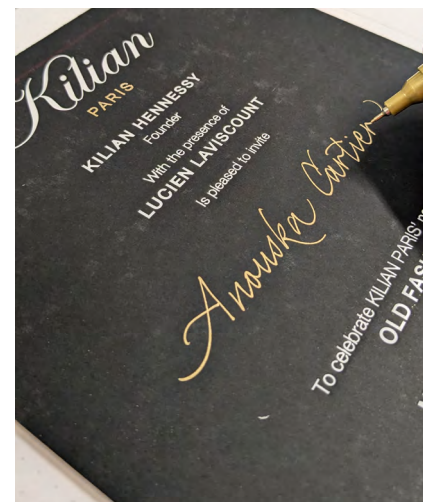 Kilian
PARIS
KILIAN HENNESSY
Founder
With the presence of
LUCIEN LAVISCOUNT
Is pleased to invite
Anouska Cartier
To celebrate KILIAN PARIS'
OLD